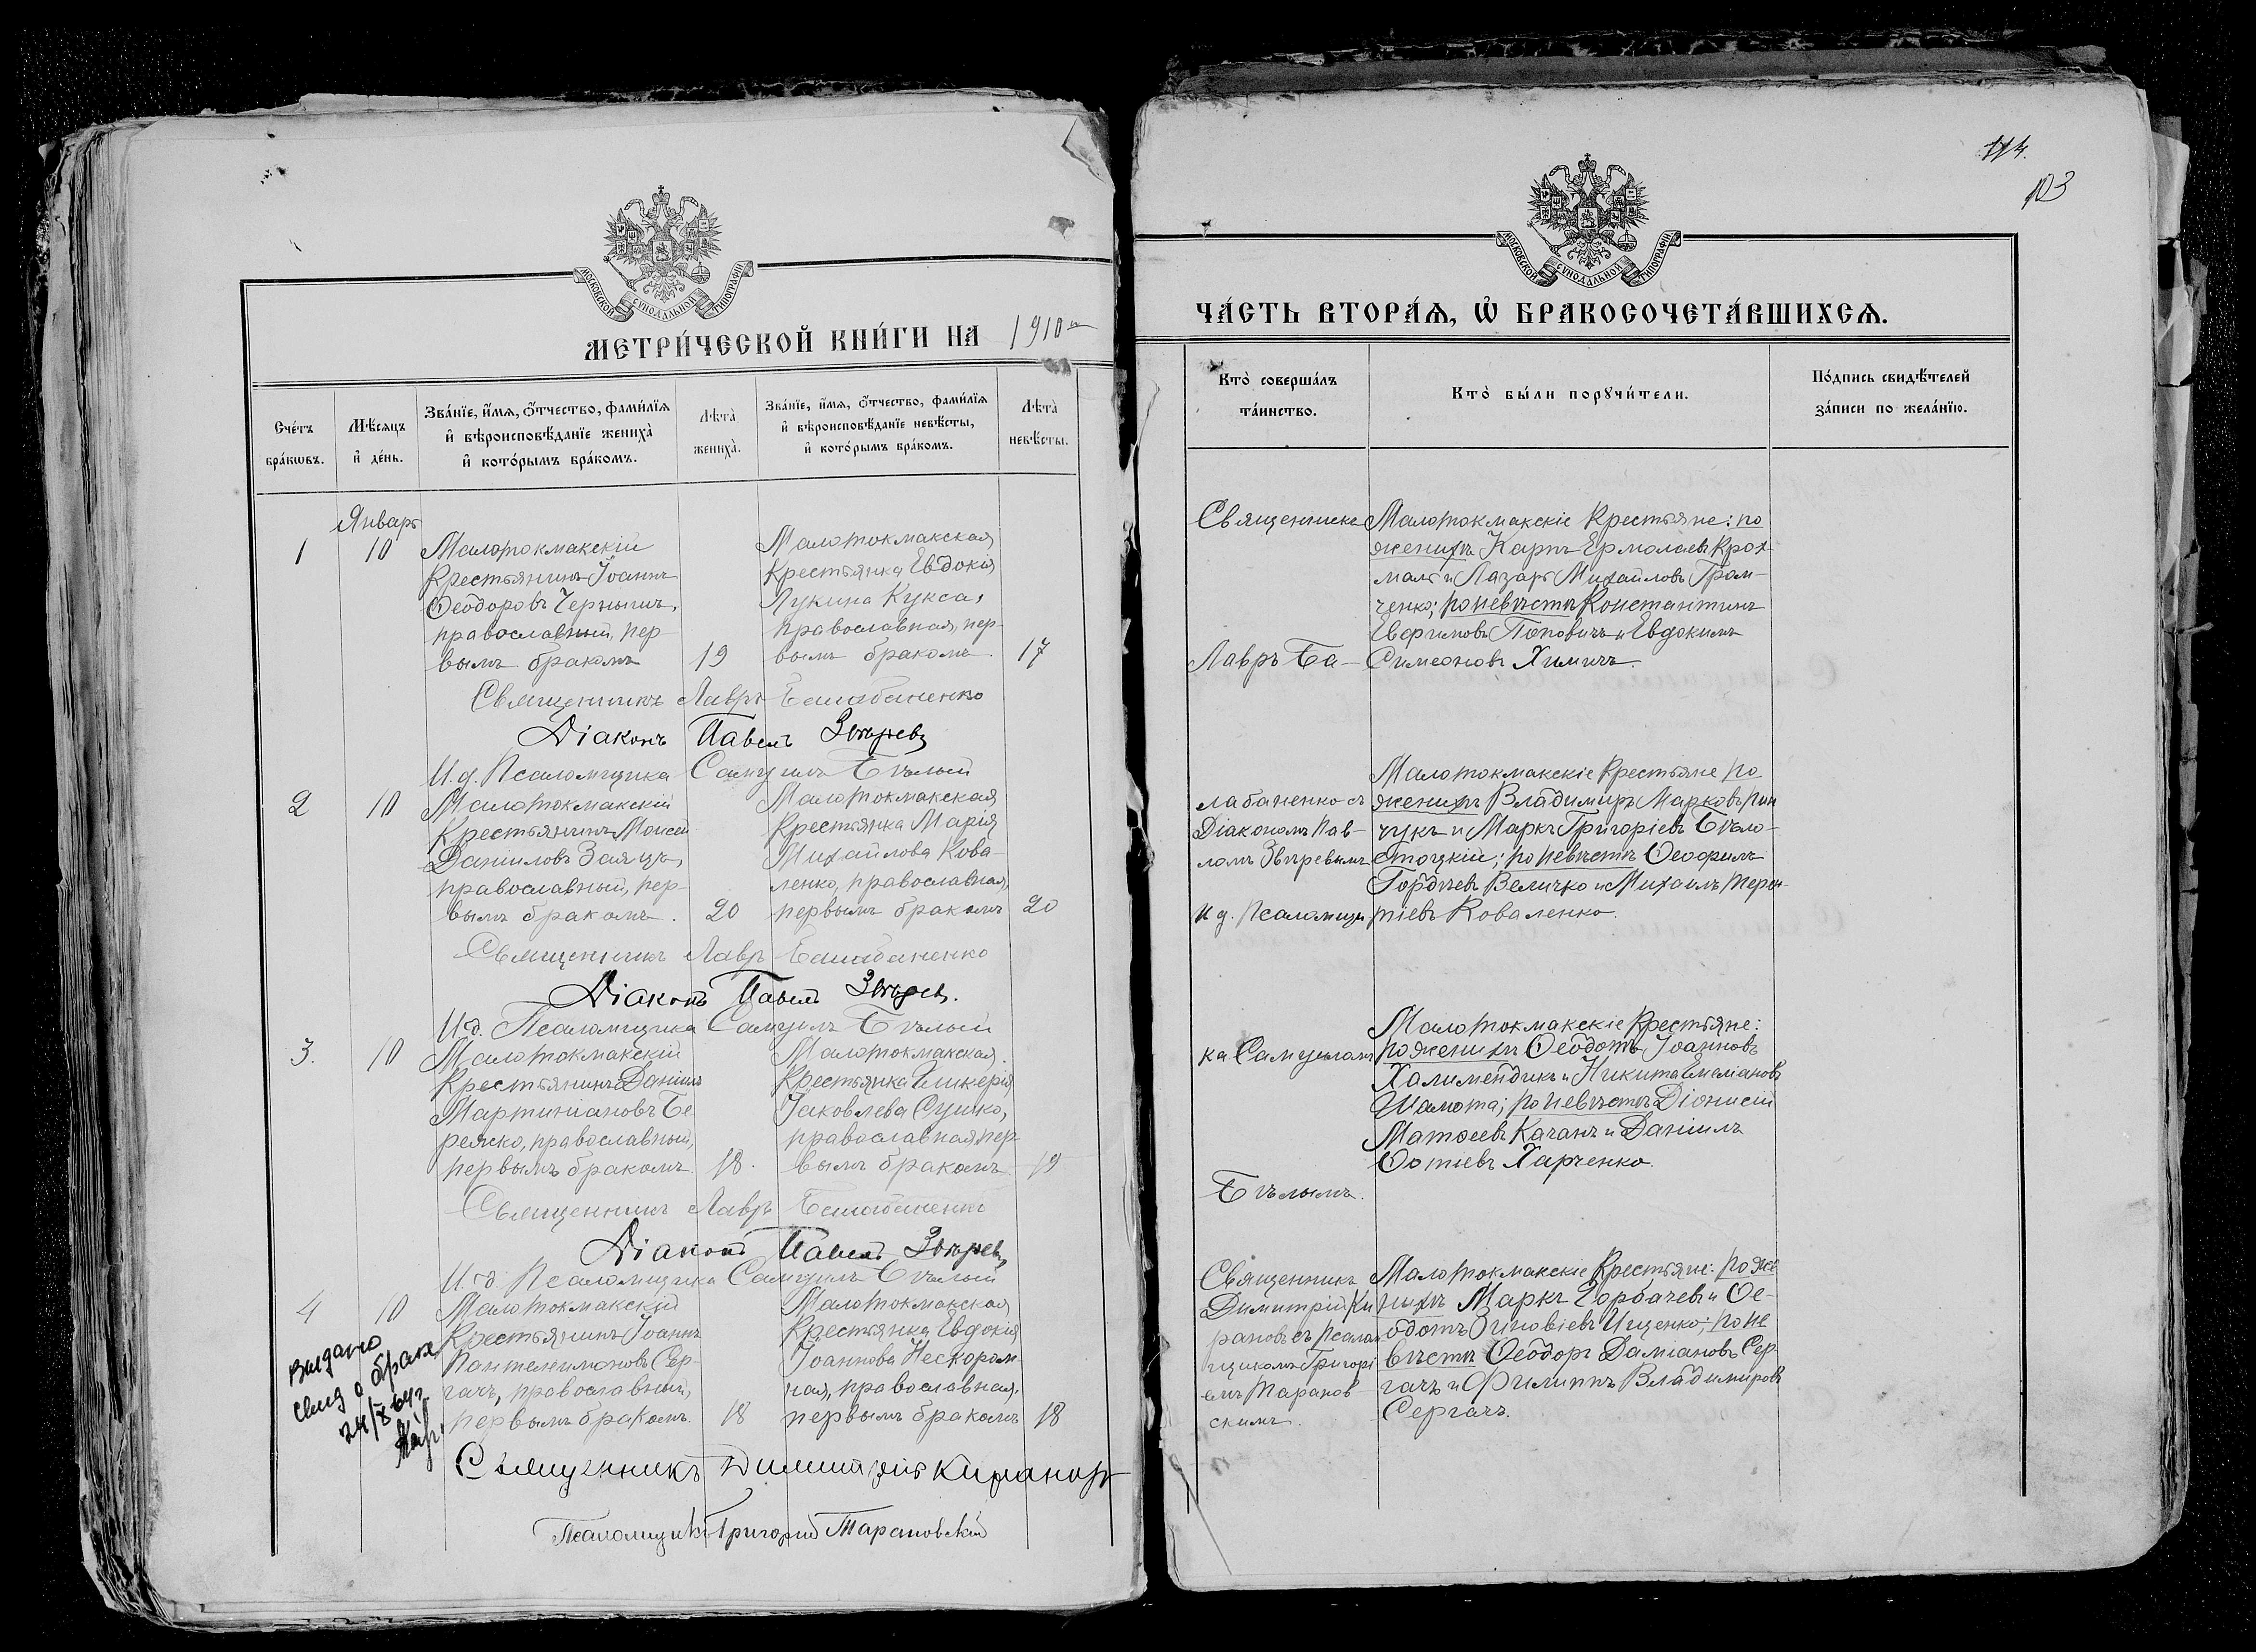 МОСКОВСКОЙ СѴНОДАЛЬНОЙ ТИПОГРАФІИ
МЕТРИ́ЧЕСКОЙ КНИ́ГИ НА 1910
Сче́тъ бра́кѡвъ.
Мѣ́сѧцъ и҆ де́нь.
Зва́нїе, и҆́мѧ, ѻ҆́тчество, фами́лїѧ
и҆ вѣроисповѣ́данїе жениха̀
и҆ кото́рымъ бра́комъ.
Лѣта̀ жениха̀.
Зва́нїе, и҆́мѧ, ѻ҆́тчество, фами́лїѧ
и҆ вѣроисповѣ́данїе невѣ́сты,
и҆ кото́рымъ бра́комъ.
Лѣта̀ невѣ́сты.
Январь
1 10
Малотокмакскій
Крестьянинъ Іоаннъ
Ѳеодоровъ Чернышъ,
православный, пер-
вымъ бракомъ 19
Малотокмакская
Крестьянка Евдокія
Лукина Кукса,
православная, пер-
вымъ бракомъ. 17
Священникъ Лавръ Балабаненко
Діаконъ Павелъ Звѣревъ
И.д. Псаломщика Самуилъ Бѣлый
2 10
Малотокмакскій
Крестьянинъ Моисей
Даніиловъ Заяцъ,
православный, пер-
вымъ бракомъ. 20
Малотокмакская
Крестьянка Марія
Михайлова Кова-
ленко, православная,
первымъ бракомъ 20
Священникъ Лавръ Балабаненко
Діаконъ Павелъ Звѣревъ.
И.д. Псаломщика Самуилъ Бѣлый
3. 10
Малотокмакскій
Крестьянинъ Даніилъ
Мартиніановъ Бе
режко, православный,
первымъ бракомъ 18.
Малотокмакская
Крестьянка Гликерія
Іаковлева Сушко,
православная, пер-
вымъ бракомъ 19
Священникъ Лавръ Балабаненко
Діаконъ Павелъ Звѣревъ
И.д. Псаломщика Самуилъ Бѣлый
4 10
Малотокмакскій
Крестьянинъ Іоаннъ
Пантелеимоновъ Сер-
гачъ, православный,
первымъ бракомъ. 18
Малотокмакская
Крестьянка Евдокія
Іоаннова Нескором-
ная, православная,
первымъ бракомъ 18
Выдано
свид о браке
24/
Священникъ Димитрій Кирановъ
Псаломщикъ Григорій Тарановскій
114.
103
МОСКОВСКОЙ СѴНОДАЛЬНОЙ ТИПОГРАФІИ
ЧА́СТЬ ВТОРА́Ѧ, Ѡ҆ БРАКОСОЧЕТА́ВШИХСѦ.
Кто̀ соверша́лъ
та́инство.
Кто̀ бы́ли порꙋчи́тели.
По́дпись свидѣ́телей
за́писи по жела́нїю.
Священникъ
Лавръ Ба-
лабаненко съ
Діакономъ Пав-
ломъ Звѣревымъ
и д. Псаломщи
ка Самуиломъ
Бѣлымъ.
Малотокмакскіе Крестьяне: по
женихѣ Карпъ Ермолаевъ Крох-
маль и Лазарь Михайловъ Гром-
ченко; по невѣстѣ Константинъ
Евфимовъ Поповичъ и Евдокимъ
Симеоновъ Химичъ.
Малотокмакскіе Крестьяне по
женихѣ Владимиръ Марковъ Пин
чукъ и Маркъ Григоріевъ Бѣло-
стоцкій; по невѣстѣ Ѳеофилъ
Гордѣевъ Величко и Михаилъ Терен-
тіевъ Коваленко.
Малотокмакскіе Крестьяне:
по женихѣ Ѳеодотъ Іоанновъ
Халимендикъ и Никита Емеліановъ
Шамота; по невѣстѣ Діонисій
Матѳеевъ Качанъ и Даніилъ
Ѳотіевъ Харченко.
Священникъ
Димитрій Ки
рановъ съ псалом
щикомъ Григорі
емъ Таранов-
скимъ.
Малотокмакскіе Крестьяне: по же
нихѣ Маркъ Горбачевъ и Ѳе-
одотъ Зиновіевъ Ищенко; по не
вѣстѣ Ѳеодоръ Даміановъ Сер-
гачъ и Филиппъ Владимировъ
Сергачъ.